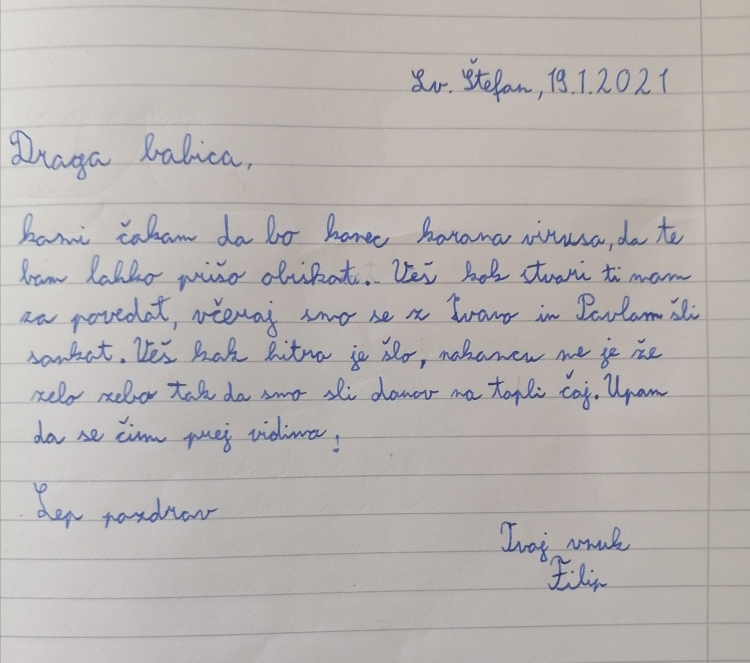 Sv. Štefan, 19.1.2021
Draga babica,
komi čakam da bo konec korona virusa, da te
bom lahko prišo obiskat. Veš kok stvari ti mam
za povedat, včeraj smo se z Ivano in Pavlom šli
sankat. Veš kak hitro je šlo, nakoncu me je že
zelo zeblo tak da smo sli domov na topli čaj. Upam
da se čim prej vidimo!
Lep pozdrav
Tvoj vnuk
Filip